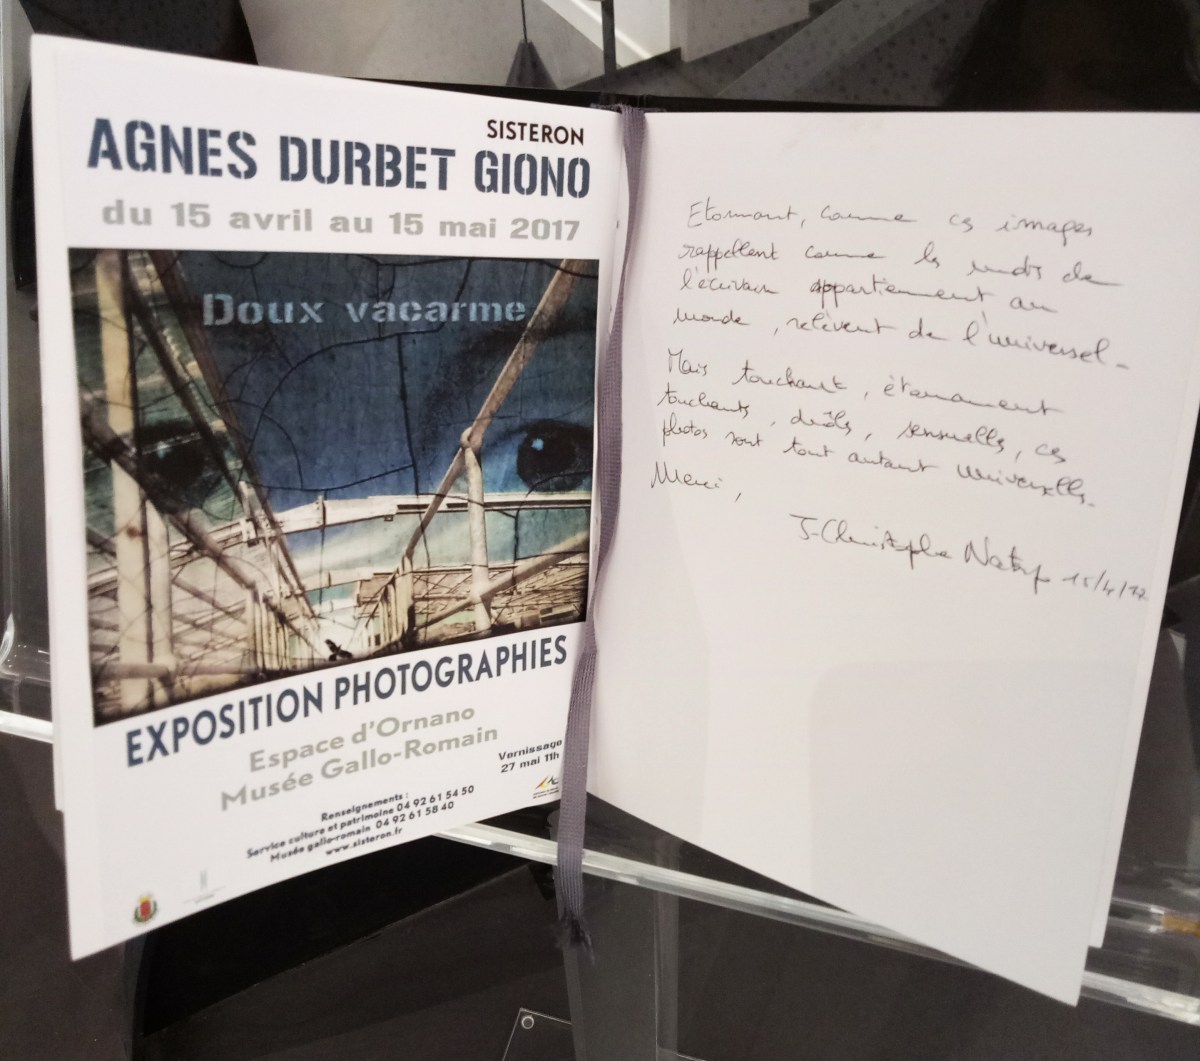 SISTERON
AGNES DURBET GIONO
du 15 avril au 15 mai 2017
Doux vacarme
EXPOSITION PHOTOGRAPHIES
Espace d'Ornano
Musée Gallo-Romain
Vernissage
27 mai 11h
Renseignements :
Service culture et patrimoine 04 92 61 54 50
Musée gallo-romain 04 92 61 58 40
www.sisteron.fr
Etonnant, comme ces images
rappellent comme les mots de
l'écrivain appartiennent au
monde, relèvent de l'universel.
Mais touchant, étonnament
touchants, drôles, sensuelles, ces
photos sont tout autant universelles.
Merci,
J-Christophe 15/4/17